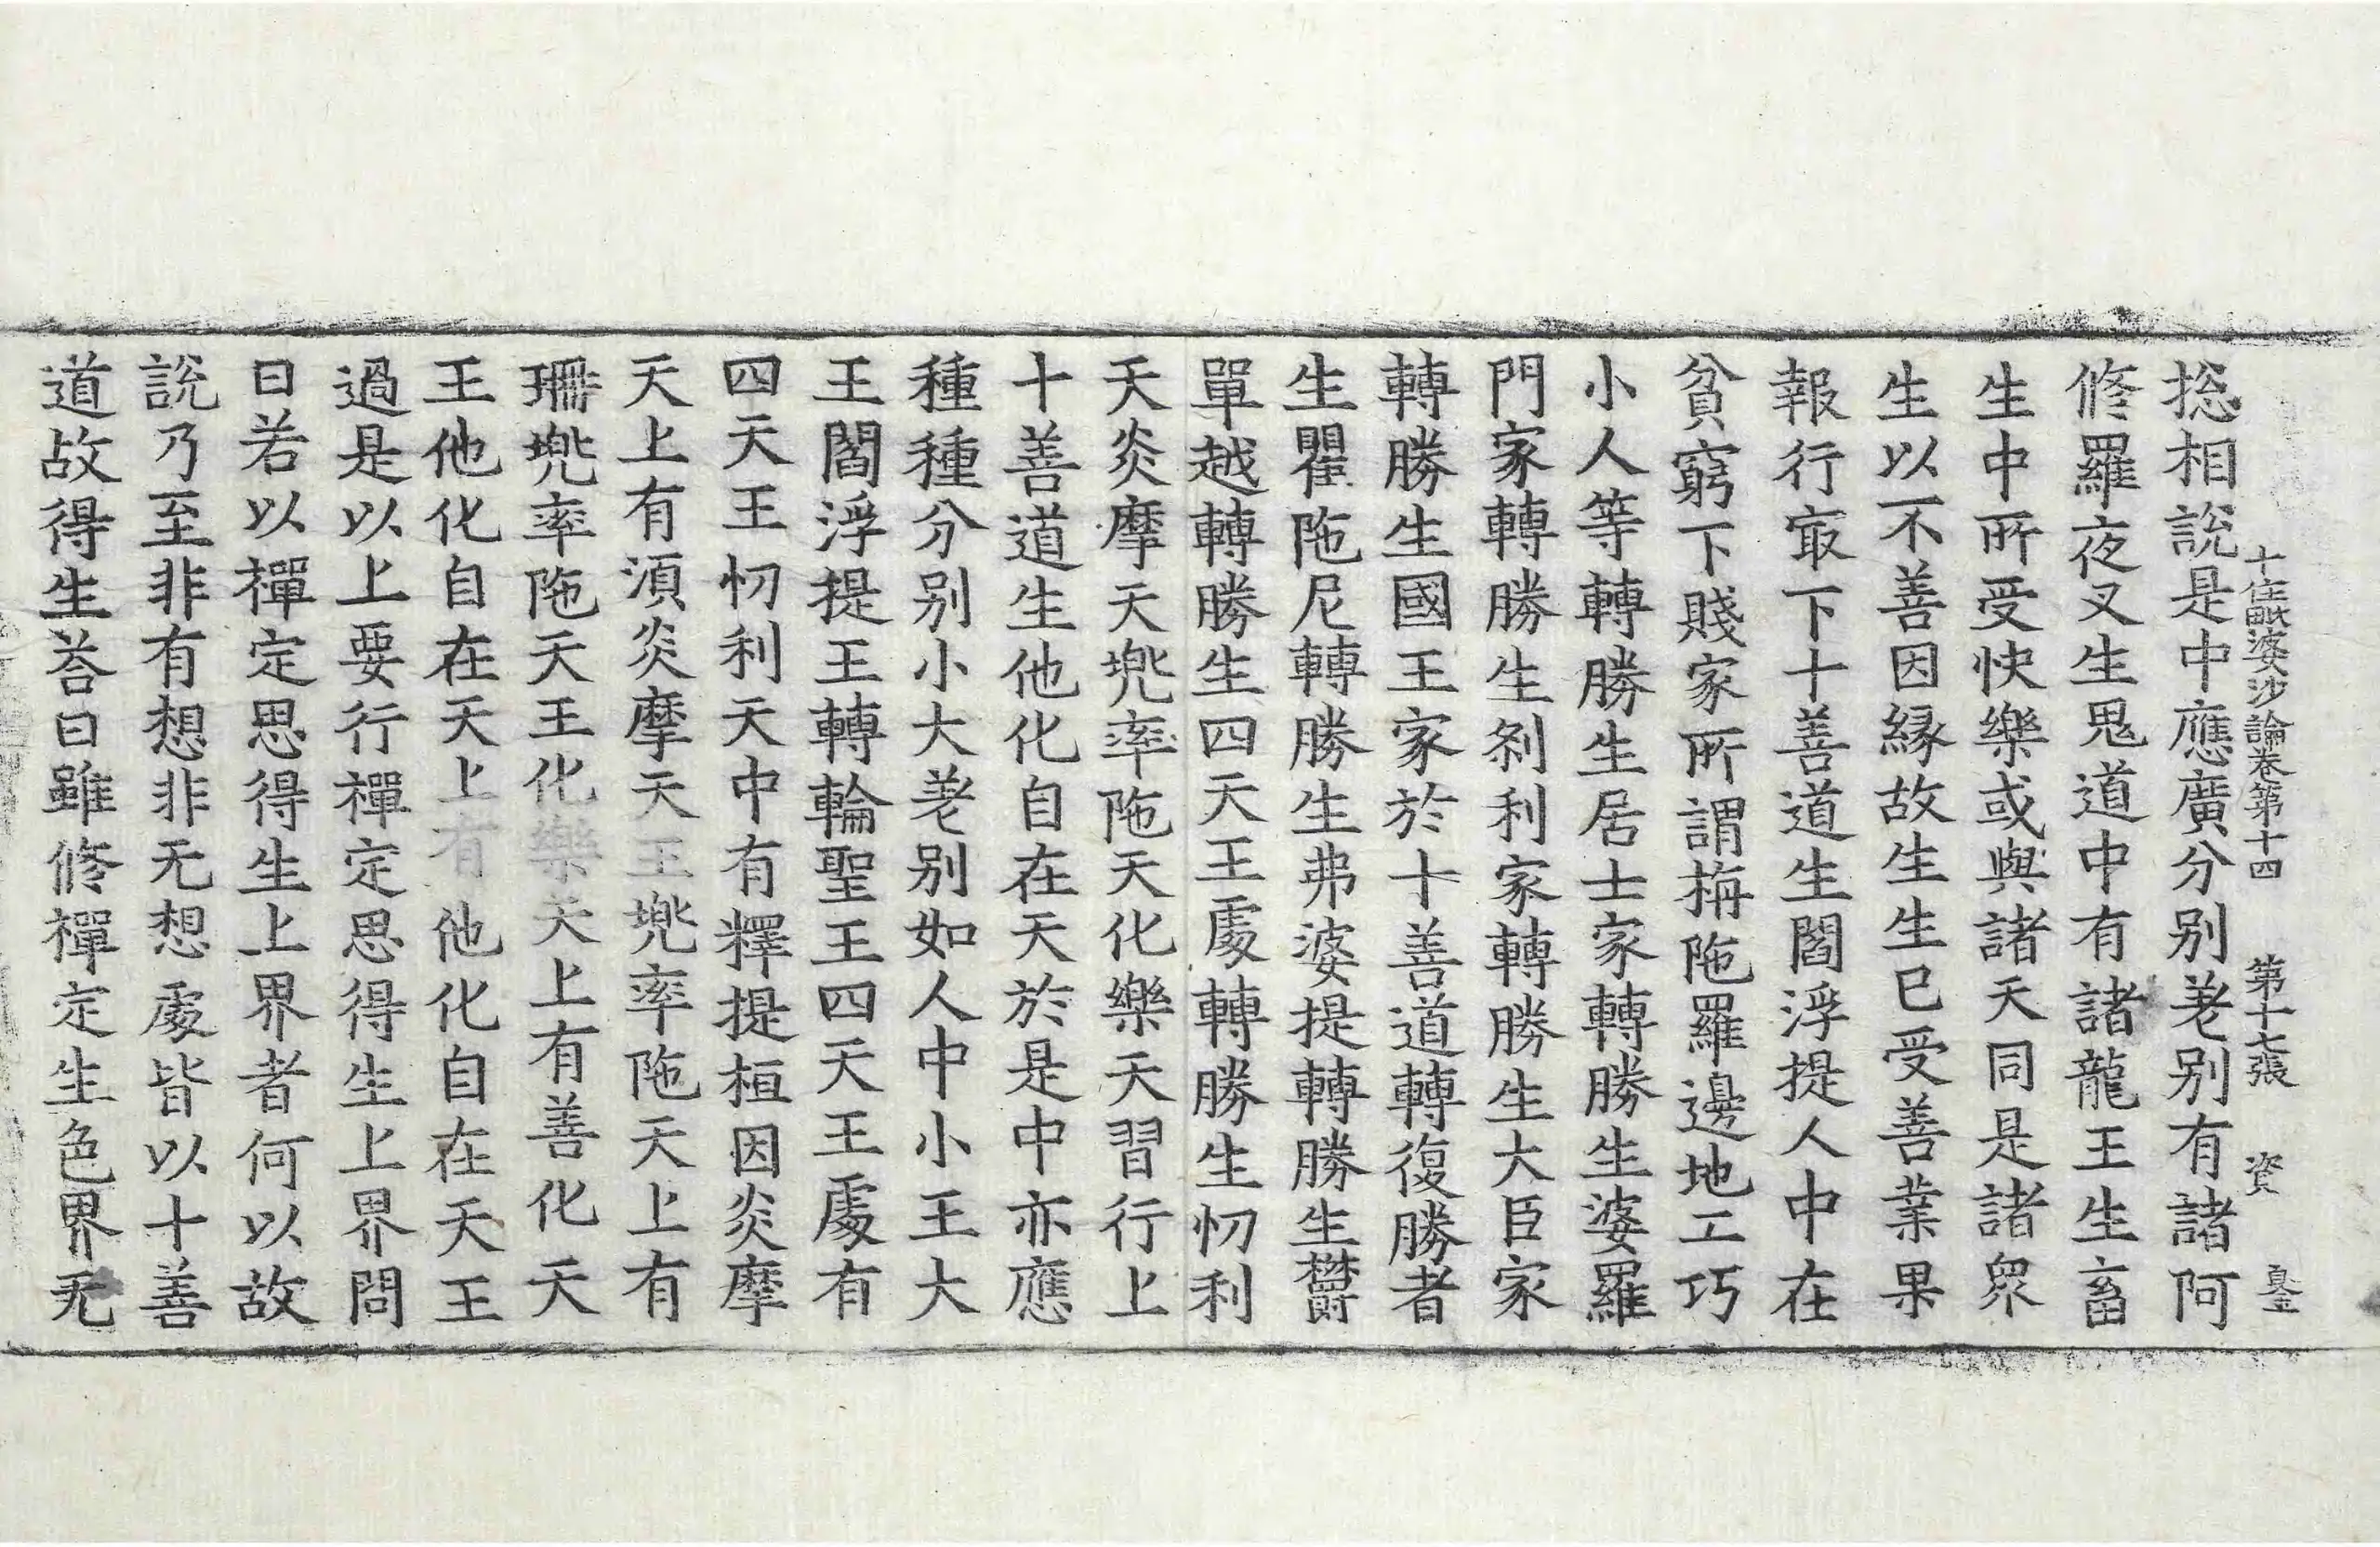 十住毗婆沙論卷第十四　第十七張　資
捴相說是中應廣分别差别有諸阿
修羅夜叉生鬼道中有諸龍王生畜
生中所受快樂或與諸天同是諸衆
生以不善因緣故生生已受善業果
報行㝡下十善道生閻浮提人中在
貧窮下賤家所謂栴陁羅邊地工巧
小人等轉勝生居士家轉勝生婆羅
門家轉勝生刹利家轉勝生大臣家
轉勝生國王家於十善道轉復勝者
生瞿陁尼轉勝生弗婆提轉勝生欝
單越轉勝生四天王處轉勝生忉利
天炎摩天兠率陁天化樂天習行上
十善道生他化自在天於是中亦應
種種分别小大差别如人中小王大
王閻浮提王轉輪聖王四天王處有
四天王忉利天中有釋提桓因炎摩
天上有湏炎摩天王兠率陁天上有
珊兠率陁天王化樂天上有善化天
王他化自在天上有他化自在天王
過是以上要行禪定思得生上界問
曰若以禪定思得生上界者何以故
說乃至非有想非无想處皆以十善
道故得生荅曰雖修禪定生色界无